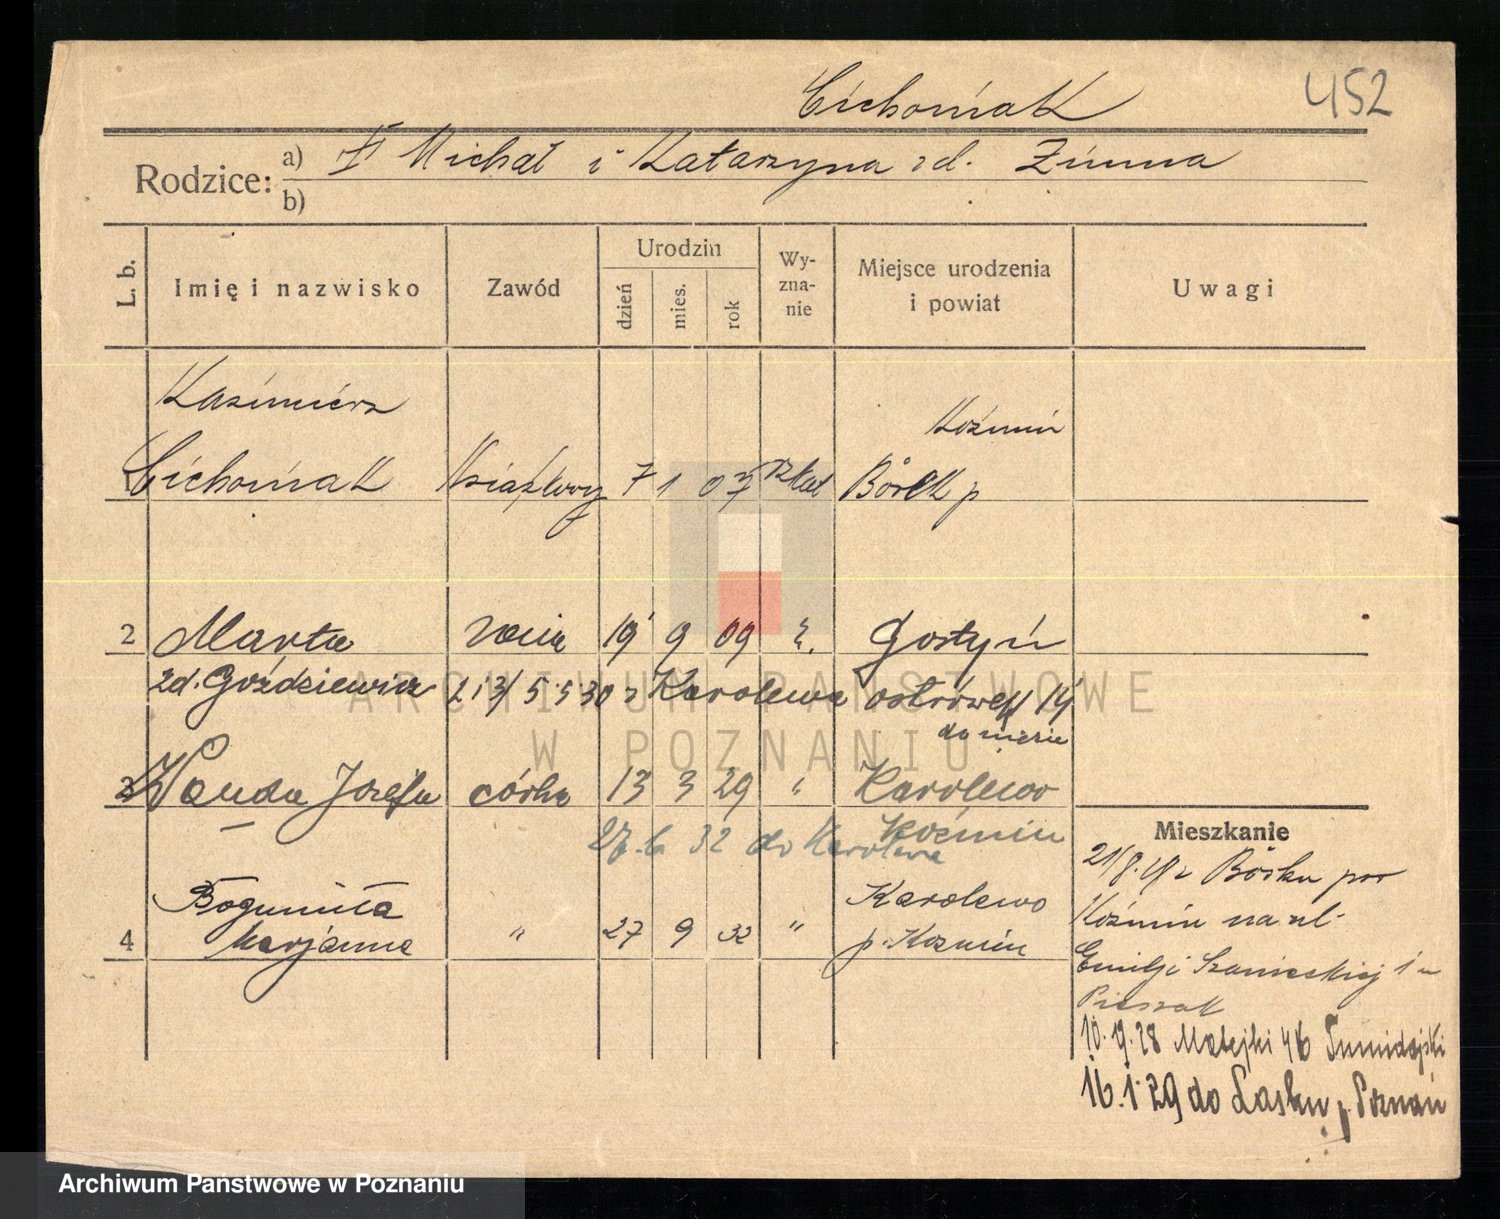 Cichoniak 452
Rodzice: a) Michał i Katarzyna zd. Zimna
b)
L. b. Imię i nazwisko Zawód Urodzin dzień mies. rok Wyznanie Miejsce urodzenia i powiat Uwagi
Kazimierz Koźmin
Cichoniak 7 1 07 Rzkat Börek p
2 Marta żona 19 9 09 Gostyń
zd. Goździewicz 5.5 30 z Karolewa ostrówek 14
do niezie
3 Wanda Józefa córka 13 3 29 " Karolewo
Koźmin
27.6 32 do Karolewa
Bogumiła Karolewo
4 Marjanna " 27 9 32 " p. Kozmin
Mieszkanie
21/8.28 z Börku pow
Koźmin na ul.
Emilji Szanieckiej 1 u
Pieszak
10.9.28 Matejki 46
16.1.29 do Lasku p. Poznań
ARCHIWUM PAŃSTWOWE
W POZNANIU
Archiwum Państwowe w Poznaniu